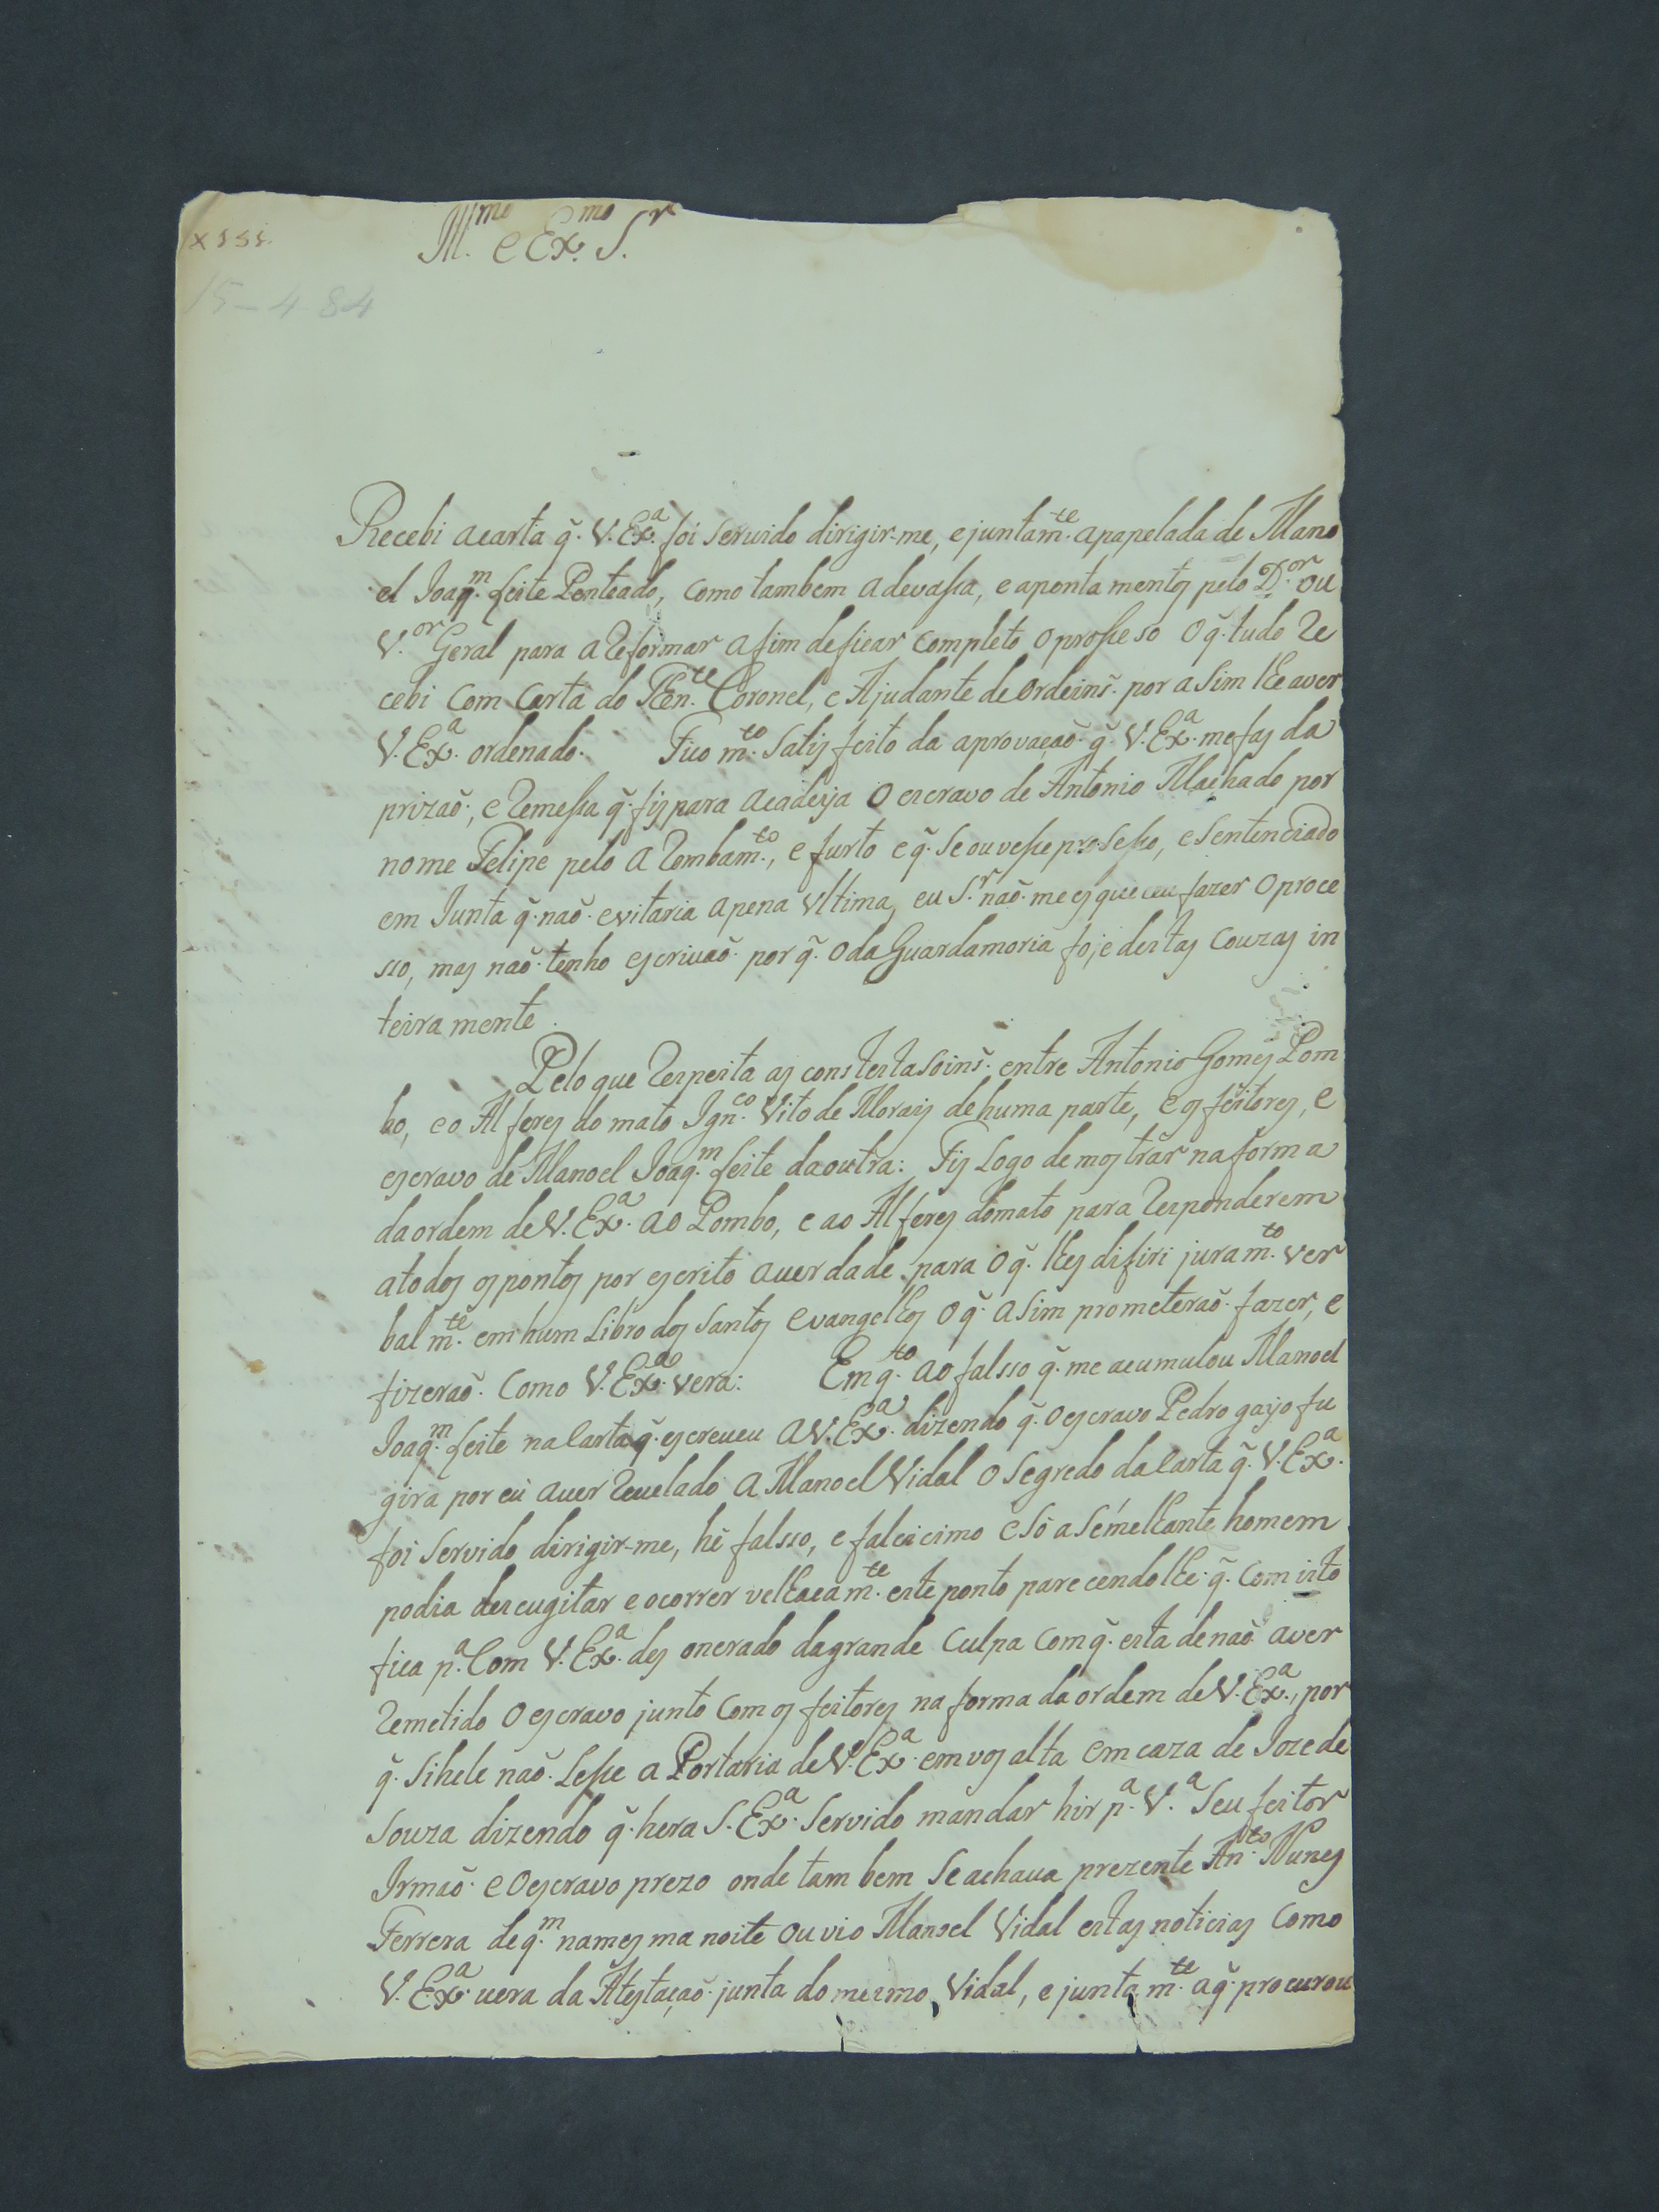 Ill.mo e Ex.mo S.r
15-4 84
Recebi acarta q̃. V. Ex.a foi Servido dirigir-me, ejuntam.te apapelada de Mano
el Joaq.m Leite Penteado, como tambem adevassa, e aponta mentos pelo D.or ou
V.or Geral para a Reformar afim deficar completo oprosseso o q̃. tudo Re
cebi com carta do Ten.te Coronel, e Ajudante de ordeins. por asim lhe aver
V. Ex.a ordenado. Fico m.to Satisfeito da aprovaçaõ. q̃. V. Ex.a mefas da
prizaõ; e Remessa q̃. fis para acadeya o escravo de Antonio Machado por
nome Felipe pelo a Rombam.to, e furto e q̃. Se ouvesse prosesso, e Sentenciado
em Junta q̃. naõ. evitaria apena Ultima, eu S.r naõ. me esqueceu fazer oproce
sso, mas naõ. tenho escrivaõ. por q̃. oda Guardamoria foje destas couzas in
teira mente.
Pelo que Respeita as constestasoins. entre Antonio Gomes Pom
bo, e o Alferes do mato Ign.co Vito de Morais de huma parte, e os feitores, e
escravo de Manoel Joaq.m Leite daoutra: Fis Logo demostrar naforma
daordem de V. Ex.a ao Pombo, e ao Alferes domato para Responderem
atodos ospontos por escrito averdade para o q̃. lhes difiri juram.to ver
bal m.te em hum Libro dos Santos evangelhos o q̃. asim prometeraõ. fazer, e
fizeraõ. Como V. Ex.a vera: Em q.to ao falsso q̃. me acumulou Manoel
Joaq.m Leite nacarta q̃. escreueu a V. Ex.a dizendo q̃. oescravo Pedro gayo fu
gira por eu aver Reuelado a Manoel Vidal o Segredo dacarta q̃. V. Ex.a
foi Servido dirigir-me, hé falsso, e falcicimo e Só a Sémelhante homem
podia descugitar e ocorrer velhacam.te este ponto parecendolhe q̃. com isto
fica p.a Com V. Ex.a des onerado dagrande culpa com q̃. esta denaõ aver
Remetido o escravo junto com os feitores na forma da ordem de V. Ex.a, por
q̃. Sihele naõ. Lesse a Portaria de V. Ex.a em vos alta em caza de Joze de
Souza dizendo q̃. hera S. Ex.a Servido mandar hir p.a V.a Seu feitor
Irmaõ. e Oescravo prezo onde tam bem Se achaua prezente An.to Nunes
Ferrera de q.m names ma noite ouvio Manoel Vidal estas noticias como
V. Ex.a uera da Atestaçaõ. junta do mesmo Vidal, e juntam.te aq̃. procurou